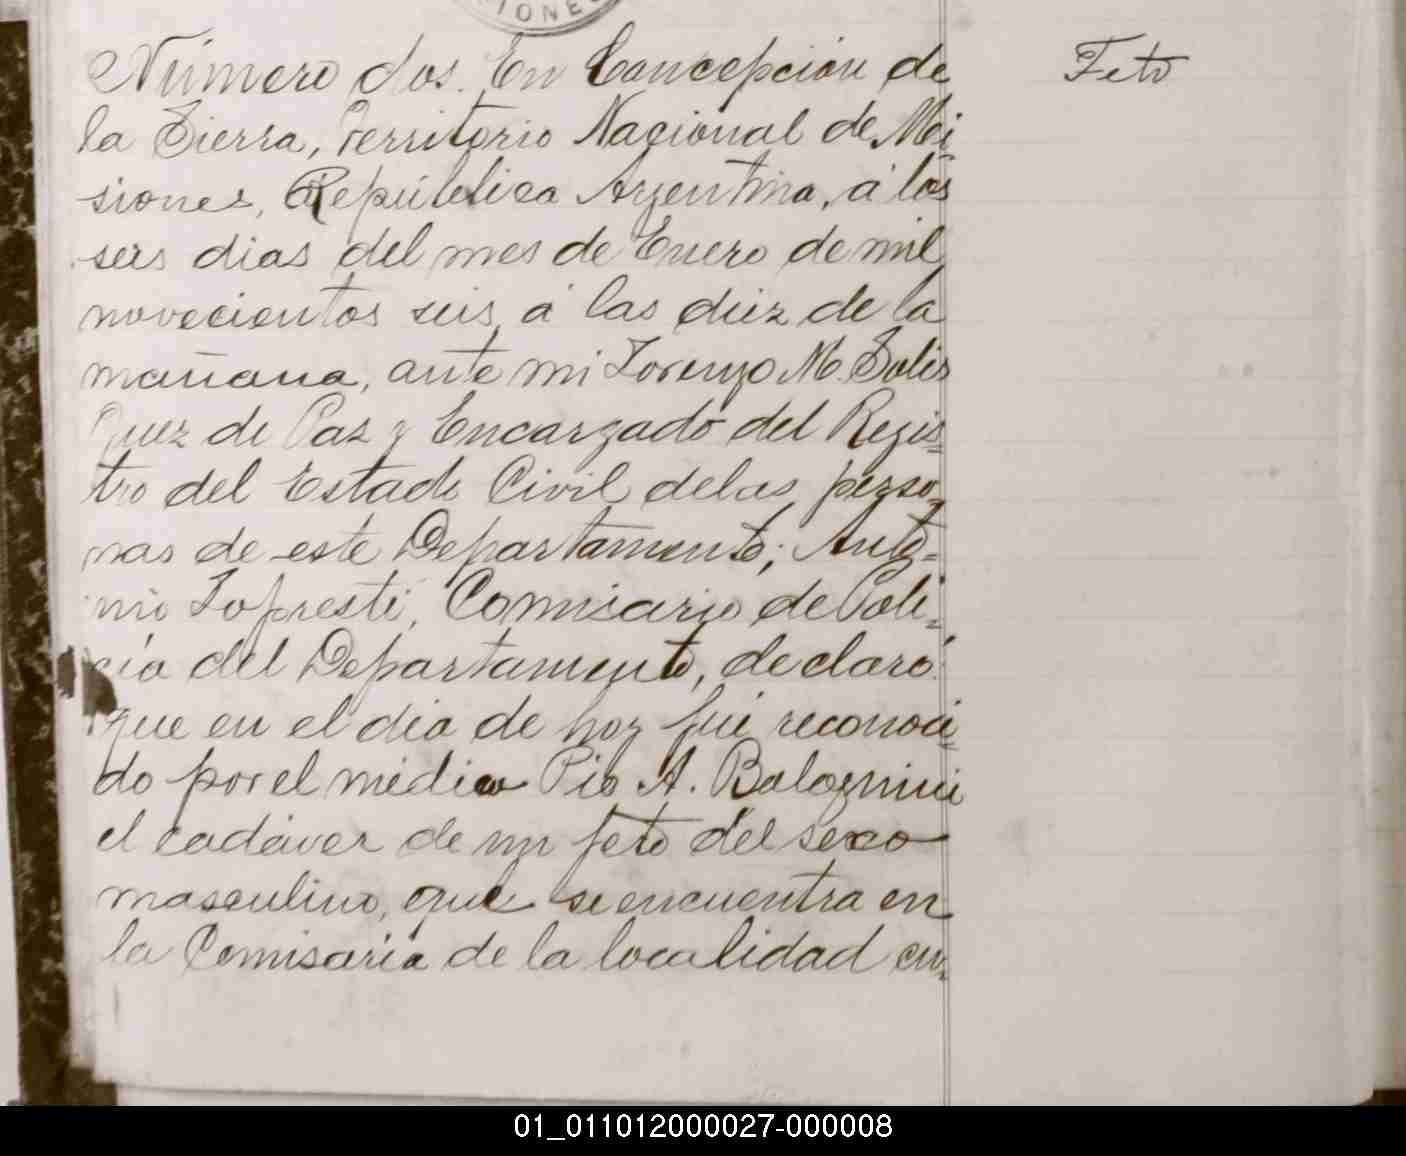 IONES
Número dos. En Concepción de
la Sierra, Territorio Nacional de Mi
siones, República Argentina, á los
seis dias del mes de Enero de mil
novecientos seis á las diez de la
mañana, ante mi Lorenzo M. Solis
Juez de Paz y Encargado del Regis=
tro del Estado Civil de las perso=
nas de este Departamento; Anto=
nio Lopresti, Comisario de Poli=
cía del Departamento, declaró:
que en el dia de hoy fué reconoci=
do por el médico Pio A. Bolognini
el cadáver de un feto del sexo
masculino, que se encuentra en
la Comisaría de la localidad cu=
Feto
01_011012000027-000008